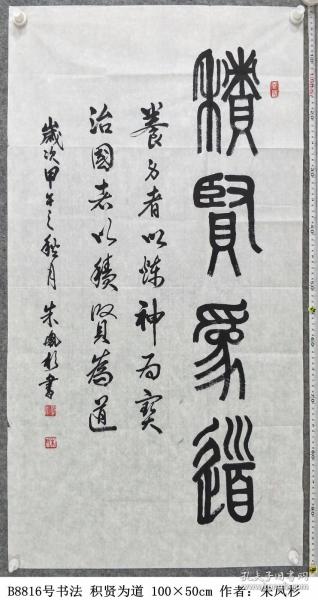 積賢為道
養身者以煉神为寶
治國者以積賢為道
歲次甲午之秋月 朱鳳杉書
孔夫子旧书网
B8816号书法 积贤为道 100×50cm 作者：朱凤杉